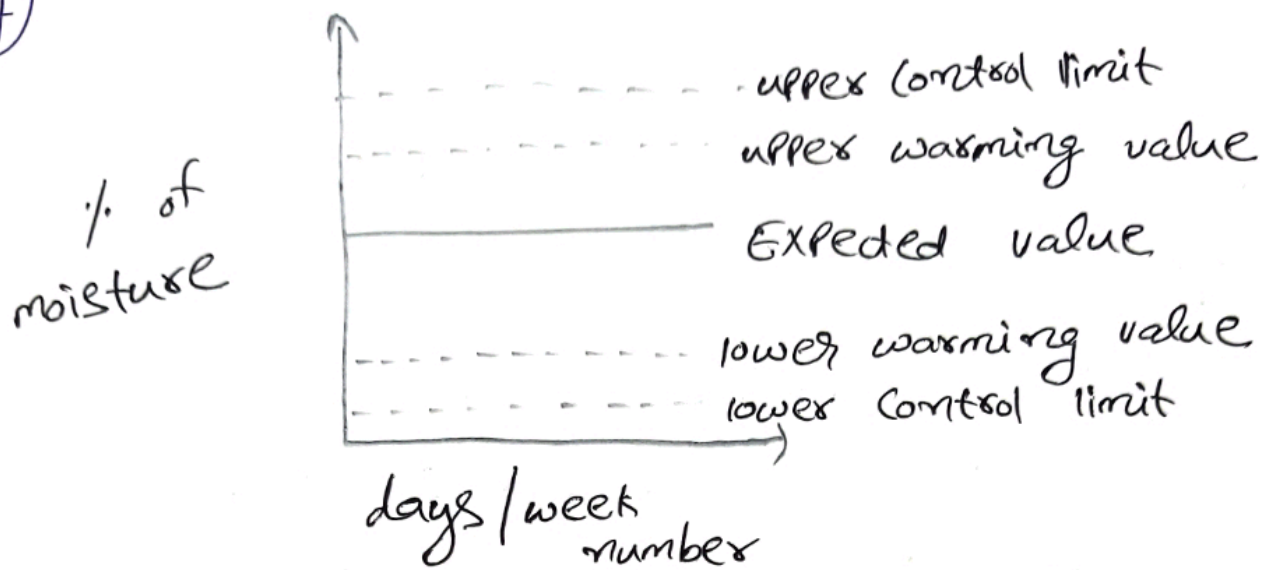 upper control limit
upper warming value
% of
moisture
Expected value
lower warming value
lower control limit
days/week
number